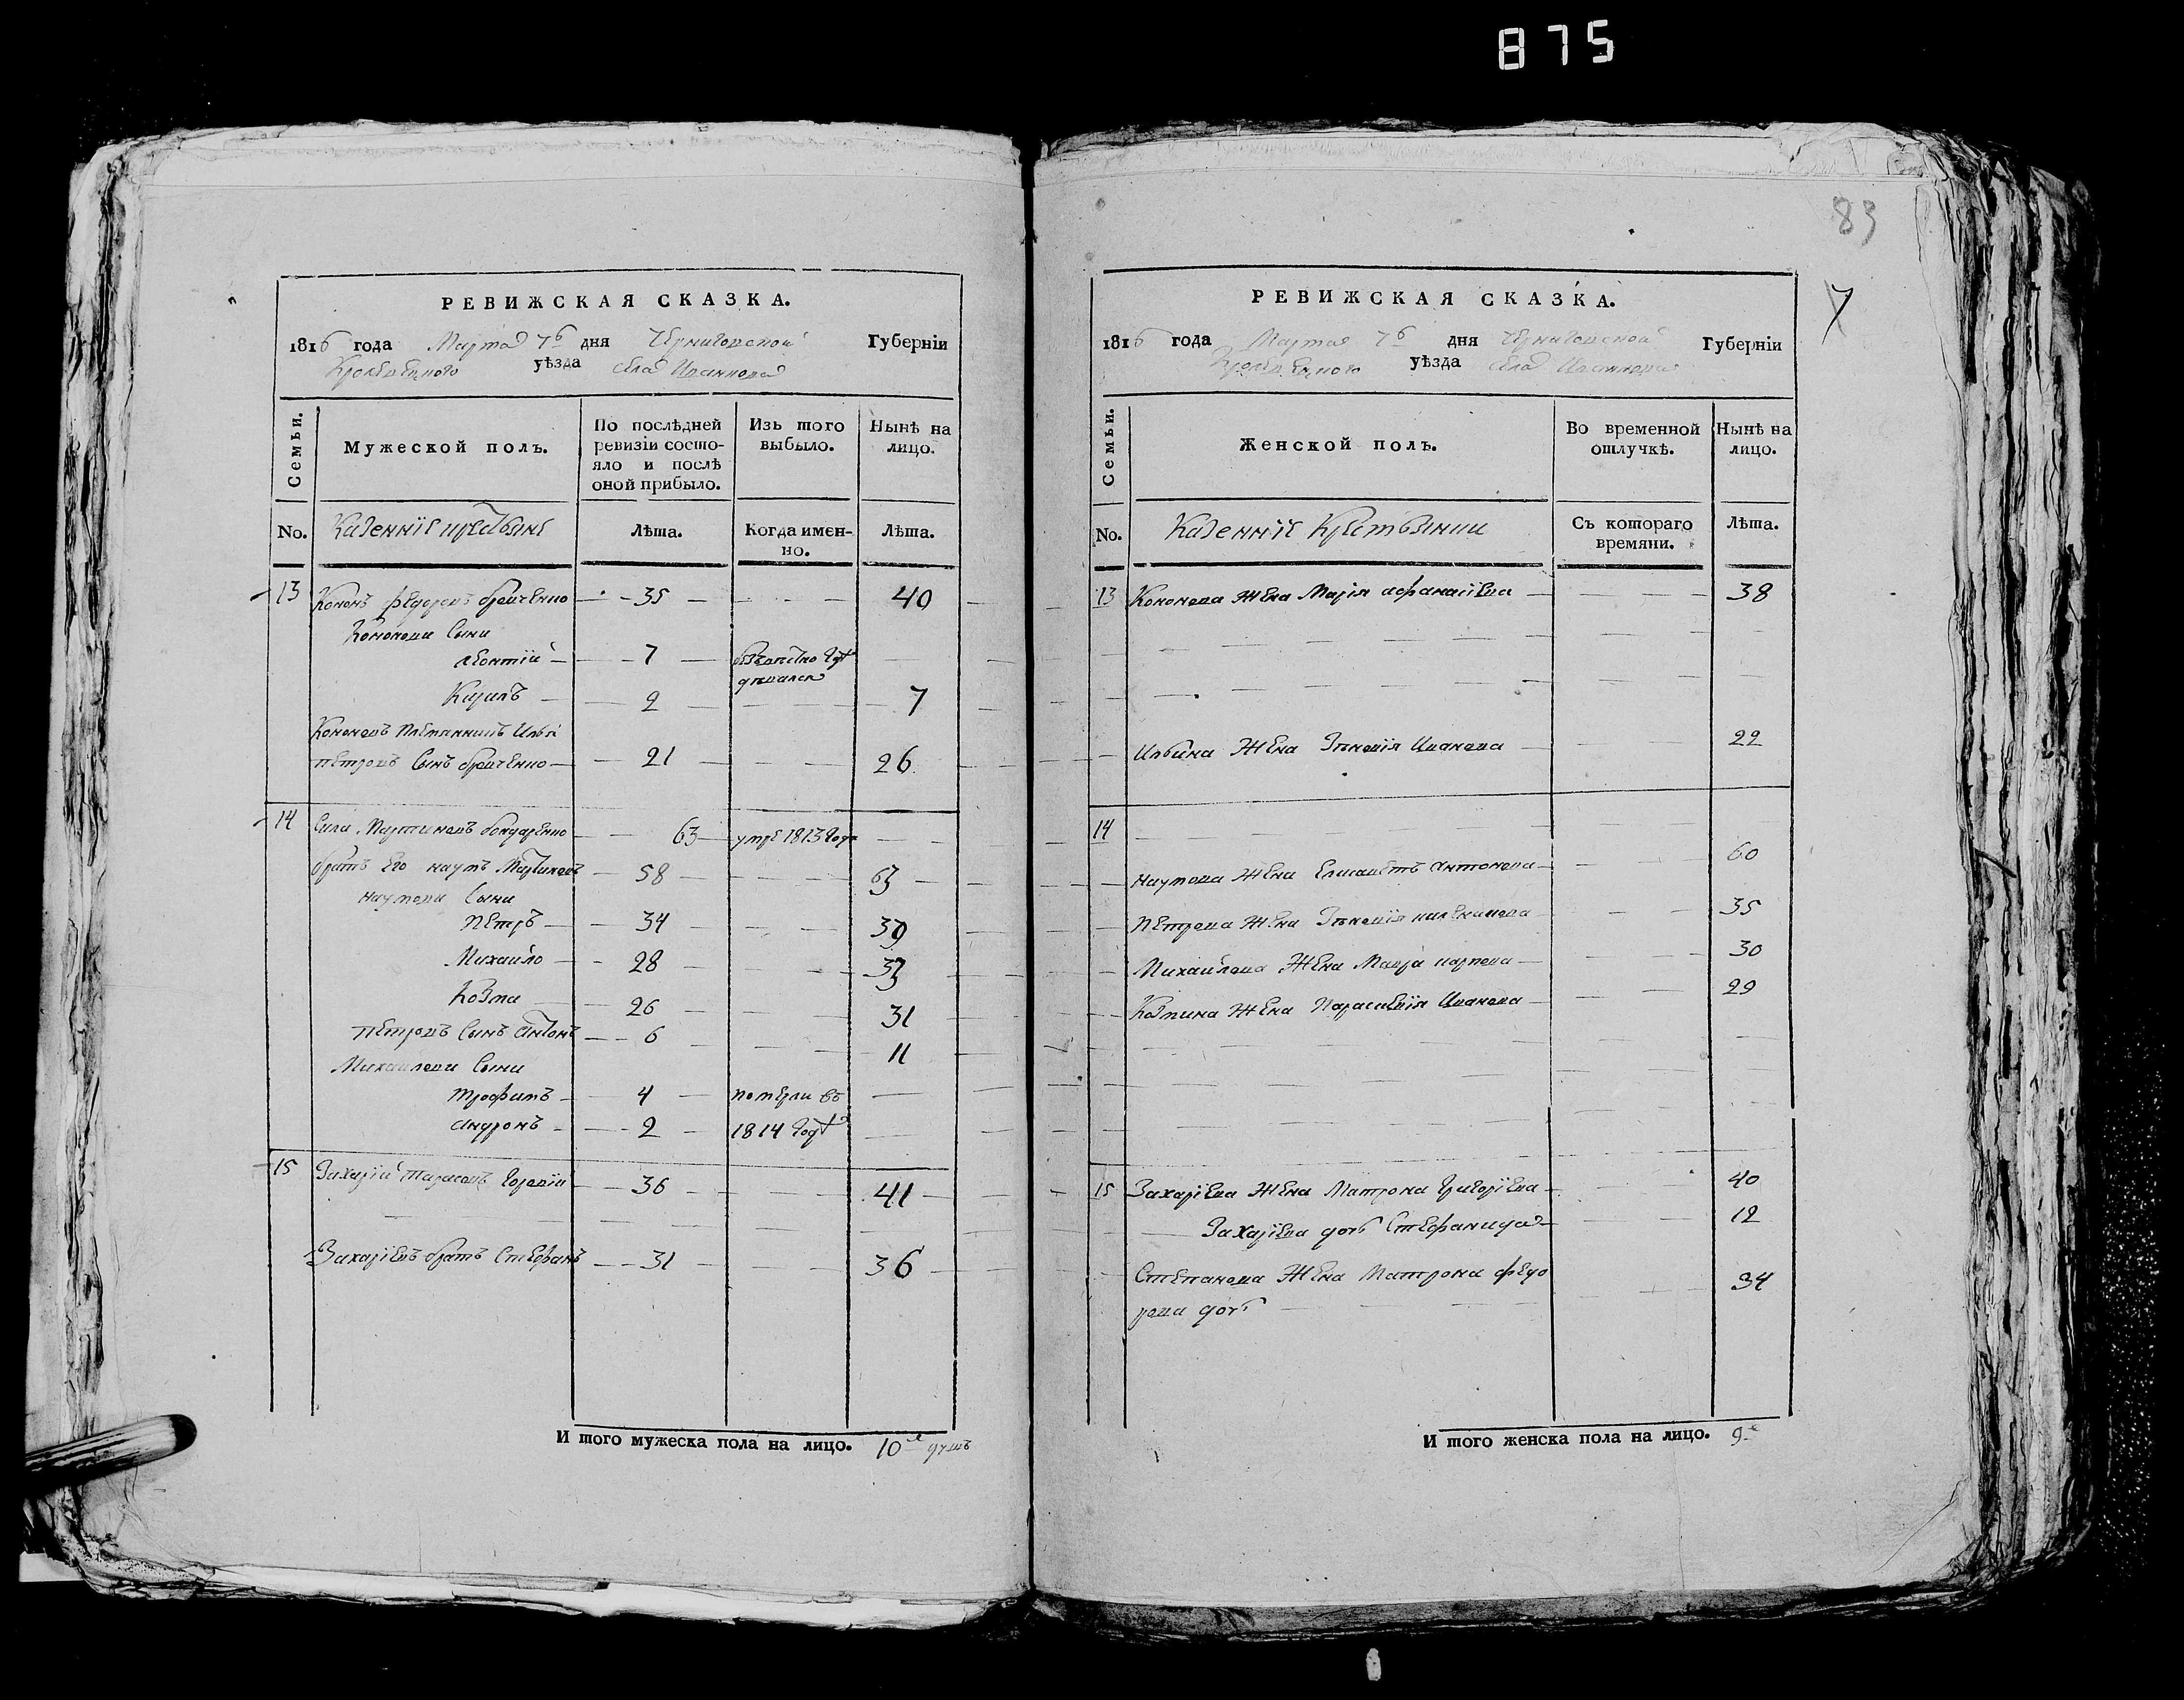 875
83
7
РЕВИЖСКАЯ СКАЗКА.
1816 года Марта 76 дня Черниговской Губерніи
Кролевецкого уѣзда села Иванкова
Семьи.
Мужеской полъ.
По послѣдней ревизіи состо-
яло и послѣ
оной прибыло.
Изъ того
выбыло.
Нынѣ на
лицо.
No. Казенніе крестьяне Лѣта. Когда имен-
но. Лѣта.
13 Кононъ Федоровъ 35 40
Кононови Сыни
Леонтій 7
Кирилъ 2 7
Кононовъ племянникъ Илья
Петровъ Сынъ 21 26
14 Сила Мартиновъ бондаренко 63 умре 1813 года
братъ Его наумъ Мартиновъ 58 63
наумови Сыни
Петръ 34 39
Михайло 28 33
Козма 26 31
Петровъ Сынъ антонъ 6 11
Михайлови Сыни
трофимъ 4 померли въ
андронъ 2 1814 году
15 Захарій тарасовъ 36 41
Захаріевъ братъ Стефанъ 31 36
И того мужеска пола на лицо. 10 душъ
РЕВИЖСКАЯ СКАЗКА.
1816 года Марта 76 дня Черниговской Губерніи
Кролевецкого уѣзда села Иванкова
Семьи.
Женской полъ.
Во временной
отлучкѣ.
Нынѣ на
лицо.
No. Казенніе Крестьянки Съ котораго
времяни. Лѣта.
13 Кононова Жена Марія афанасіева 38
Ильина Жена Зѣновія Иванова 22
14
наумова Жена Елисаветъ антонова 60
Петрова Жена Зѣновія 35
Михайлова Жена Мавра карпова 30
Козмина Жена Параскевія Иванова 29
15 Захаріева Жена Матрона григоріева 40
Захаріева дочь Стефанида 12
Степанова Жена Матрона федо
рова дочь 34
И того женска пола на лицо. 9